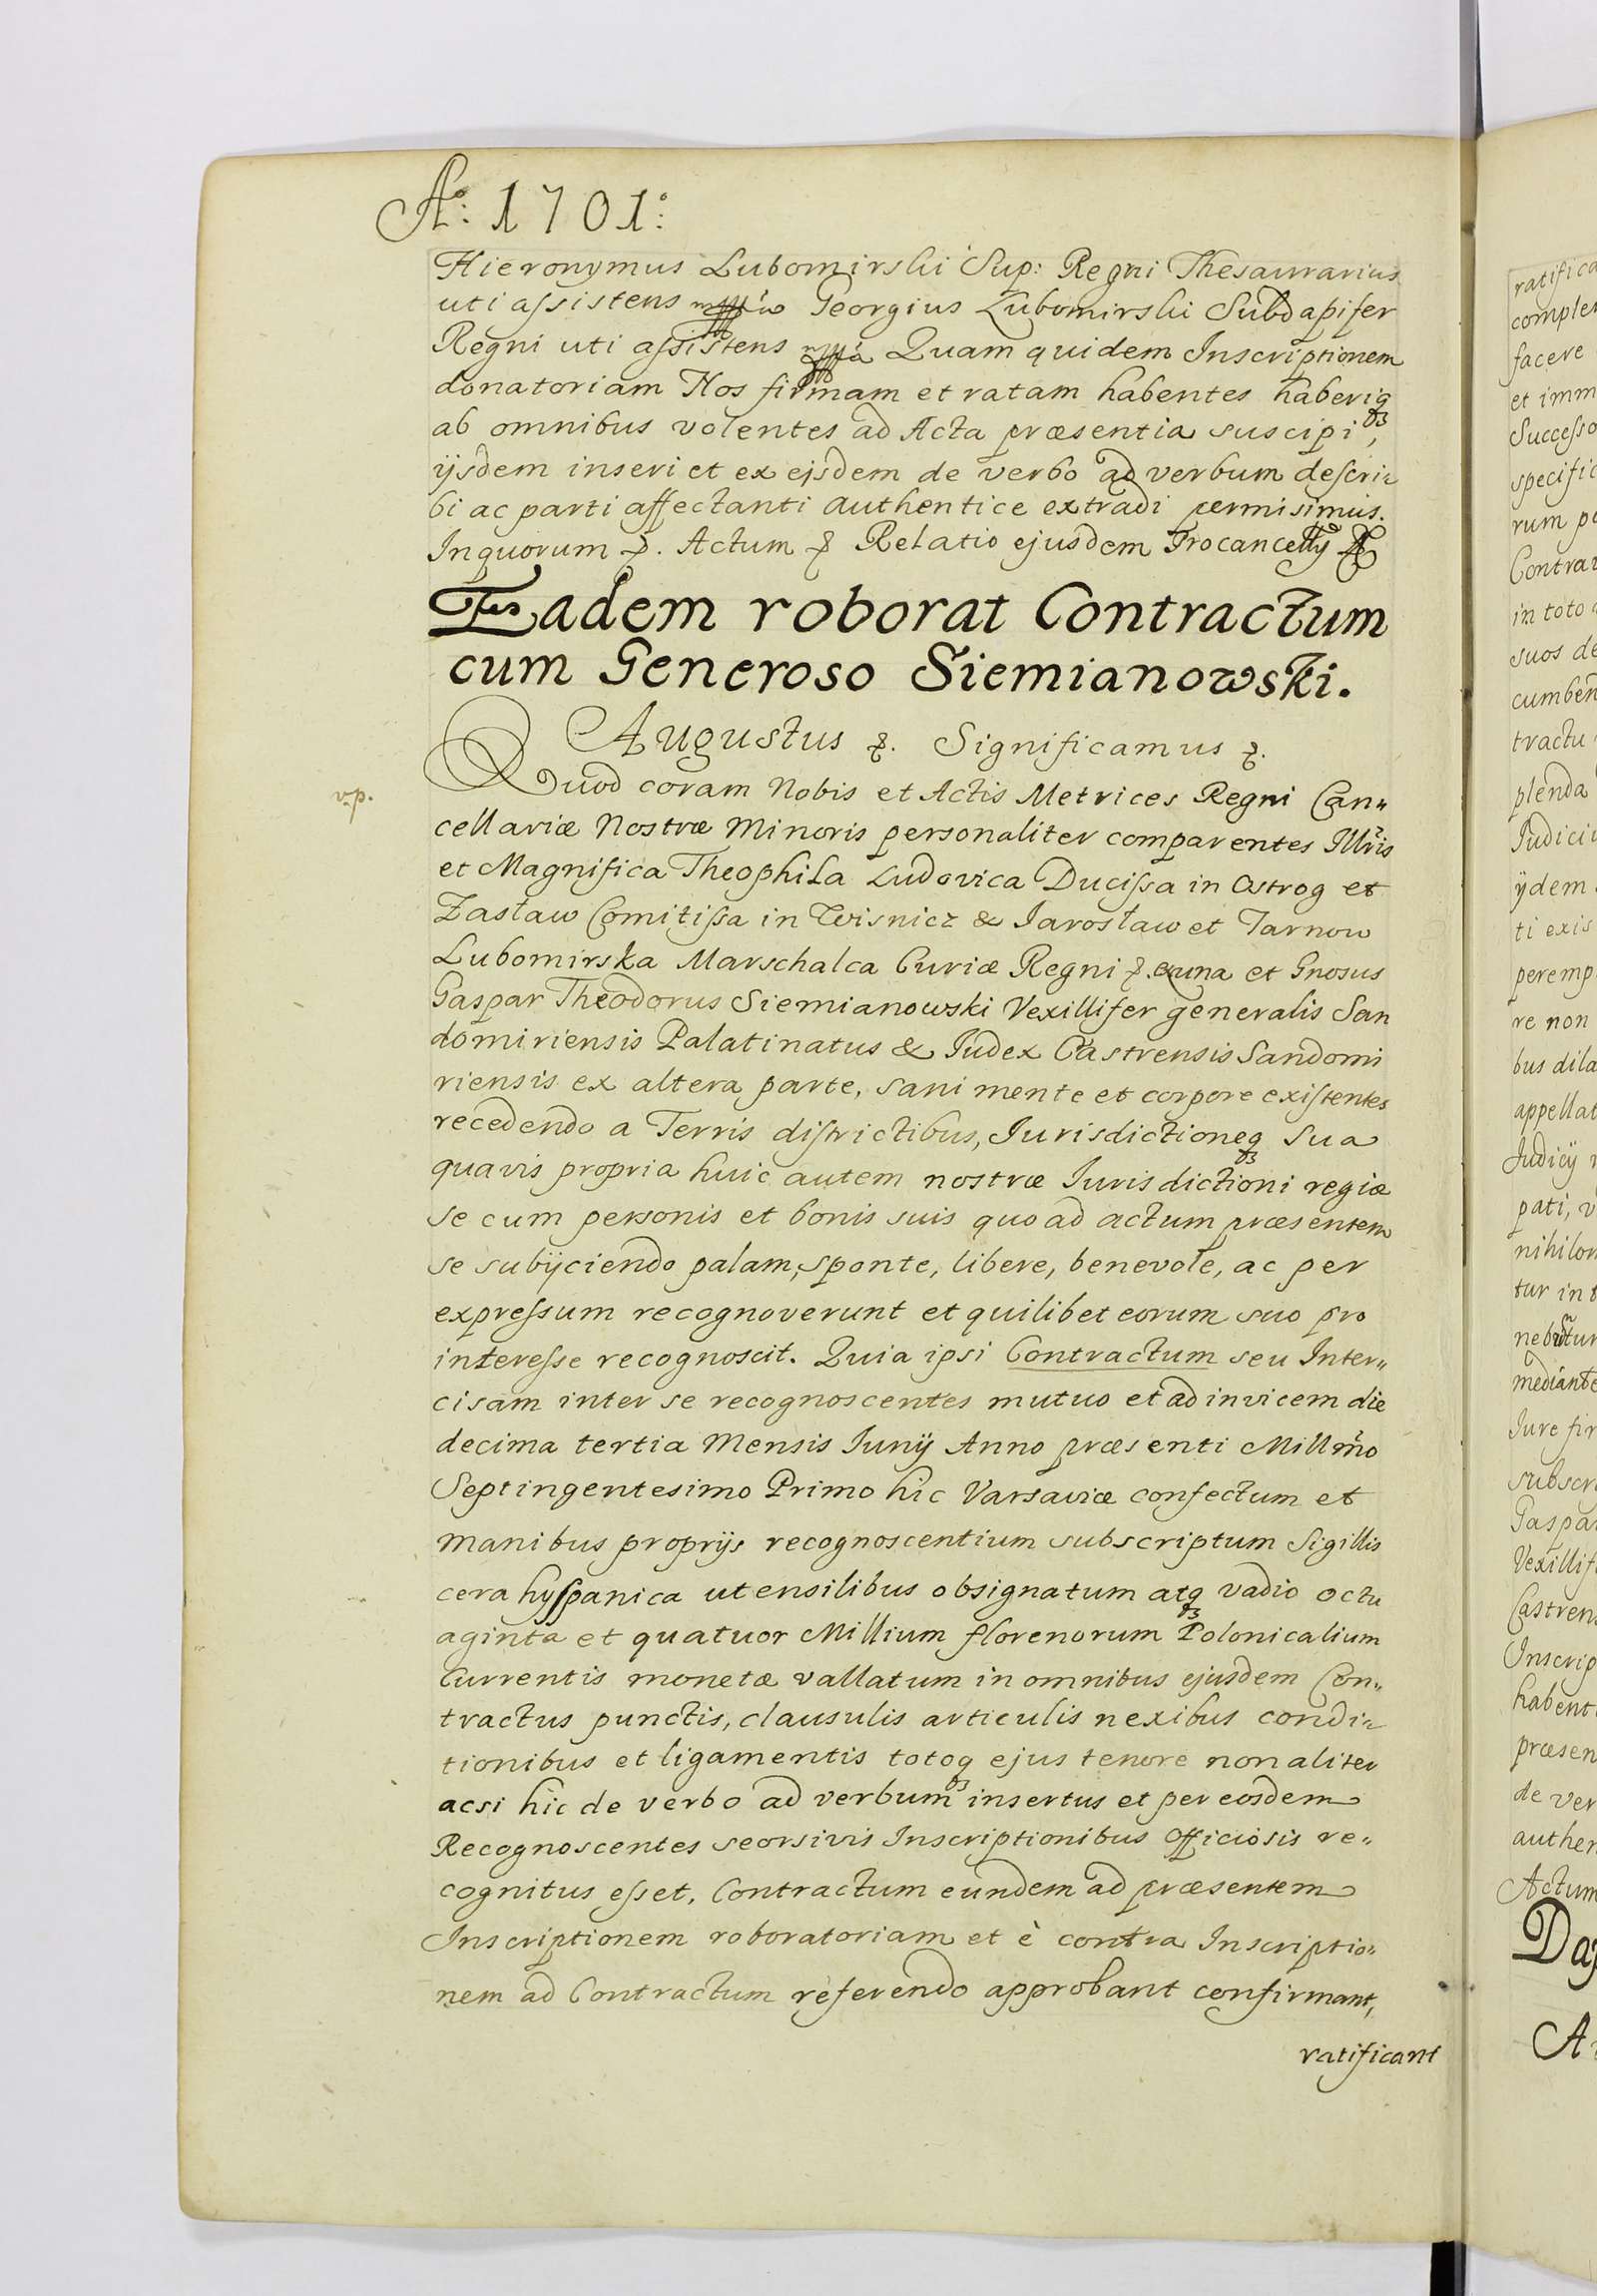 Aº: 1701º:
Hieronymus Lubomirski Sup: Regni Thesaurarius
uti assistens Georgius Lubomirski Subdapifer
Regni uti assistens Quam quidem Inscriptionem
donatoriam Nos firmam et ratam habentes haberiq₃
ab omnibus volentes ad Acta præsentia suscipi,
ijsdem inseri et ex ejsdem de verbo ad verbum descri-
bi ac parti affectanti authentice extradi permisimus.
Inquorum &. Actum & Relatio ejusdem Procancellÿ &
Eadem roborat Contractum
cum Generoso Siemianowski.
Augustus &. Significamus &.
v.p.
Quod coram Nobis et Actis Metrices Regni Can„
cellariæ Nostræ Minoris personaliter comparentes Illr̃is
et Magnifica Theophila Ludovica Ducissa in Ostrog et
Zasław Comitissa in Wisnicz & Iarosław et Tarnow
Lubomirska Marschalca Curiæ Regni &. exuna et Gnosus
Gaspar Theodorus Siemianowski Vexillifer generalis San
domiriensis Palatinatus & Iudex Castrensis Sandomi
riensis ex altera parte, sani mente et corpore existentes
recedendo a Terris districtibus, Iurisdictioneq₃ sua
quavis propria huic autem nostræ Iurisdictioni regiæ
se cum personis et bonis suis quo ad actum præsentem
se subÿciendo palam, sponte, libere, benevole, ac per
expressum recognoverunt et quilibet eorum suo pro
interesse recognoscit. Quia ipsi Contractum seu Inter„
cisam inter se recognoscentes mutuo et ad invicem die
decima tertia Mensis Iunÿ Anno præsenti Millm̃o
Septingentesimo Primo hic Varsaviæ confectum et
manibus proprÿs recognoscentium subscriptum Sigillis
cera hyspanica utensilibus obsignatum atq₃ vadio octu
aginta et quatuor Millium florenorum Polonicalium
Currentis monetæ vallatum in omnibus ejusdem Con„
tractus punctis, clausulis articulis nexibus condi-
tionibus et ligamentis totoq₃ ejus tenore non aliter
acsi hic de verbo ad verbum insertus et per eosdem
Recognoscentes seorsivis Inscriptionibus Officiosis re„
cognitus esset, Contractum eundem ad præsentem
Inscriptionem roboratoriam et è contra Inscriptio„
nem ad Contractum referendo approbant confirmant,
ratificant